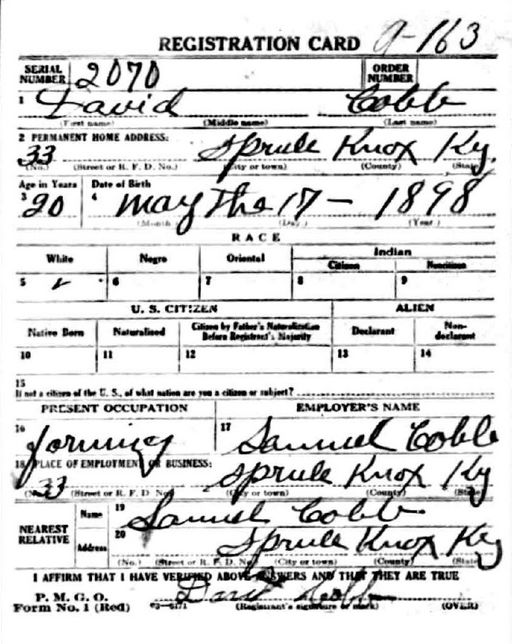 REGISTRATION CARD 9-163
SERIAL NUMBER 2070 ORDER NUMBER
1 David Cobb
(First name) (Middle name) (Last name)
2 PERMANENT HOME ADDRESS:
33 Sprule Knox Ky.
(No.) (Street or R. F. D. No.) (City or town) (County) (State)
Age in Years Date of Birth
3 20 4 May the 17 - 1898
(Month) (Day) (Year)
RACE
White Negro Oriental Indian
Citizen Noncitizen
5 ✓ 6 7 8 9
U. S. CITIZEN ALIEN
Native Born Naturalized Citizen by Father's Naturalization Before Registrant's Majority Declarant Non-declarant
10 11 12 13 14
15
If not a citizen of the U. S., of what nation are you a citizen or subject?
PRESENT OCCUPATION EMPLOYER'S NAME
16 forming 17 Samuel Cobb
18 PLACE OF EMPLOYMENT OR BUSINESS:
33 Sprule Knox Ky
(No.) (Street or R. F. D. No.) (City or town) (County) (State)
NEAREST RELATIVE Name 19 Samuel Cobb
Address 20 Sprule Knox Ky
(No.) (Street or R. F. D. No.) (City or town) (County) (State)
I AFFIRM THAT I HAVE VERIFIED ABOVE ANSWERS AND THAT THEY ARE TRUE
P. M. G. O.
Form No. 1 (Red) 03-6171 David Cobb
(Registrant's signature or mark) (OVER)